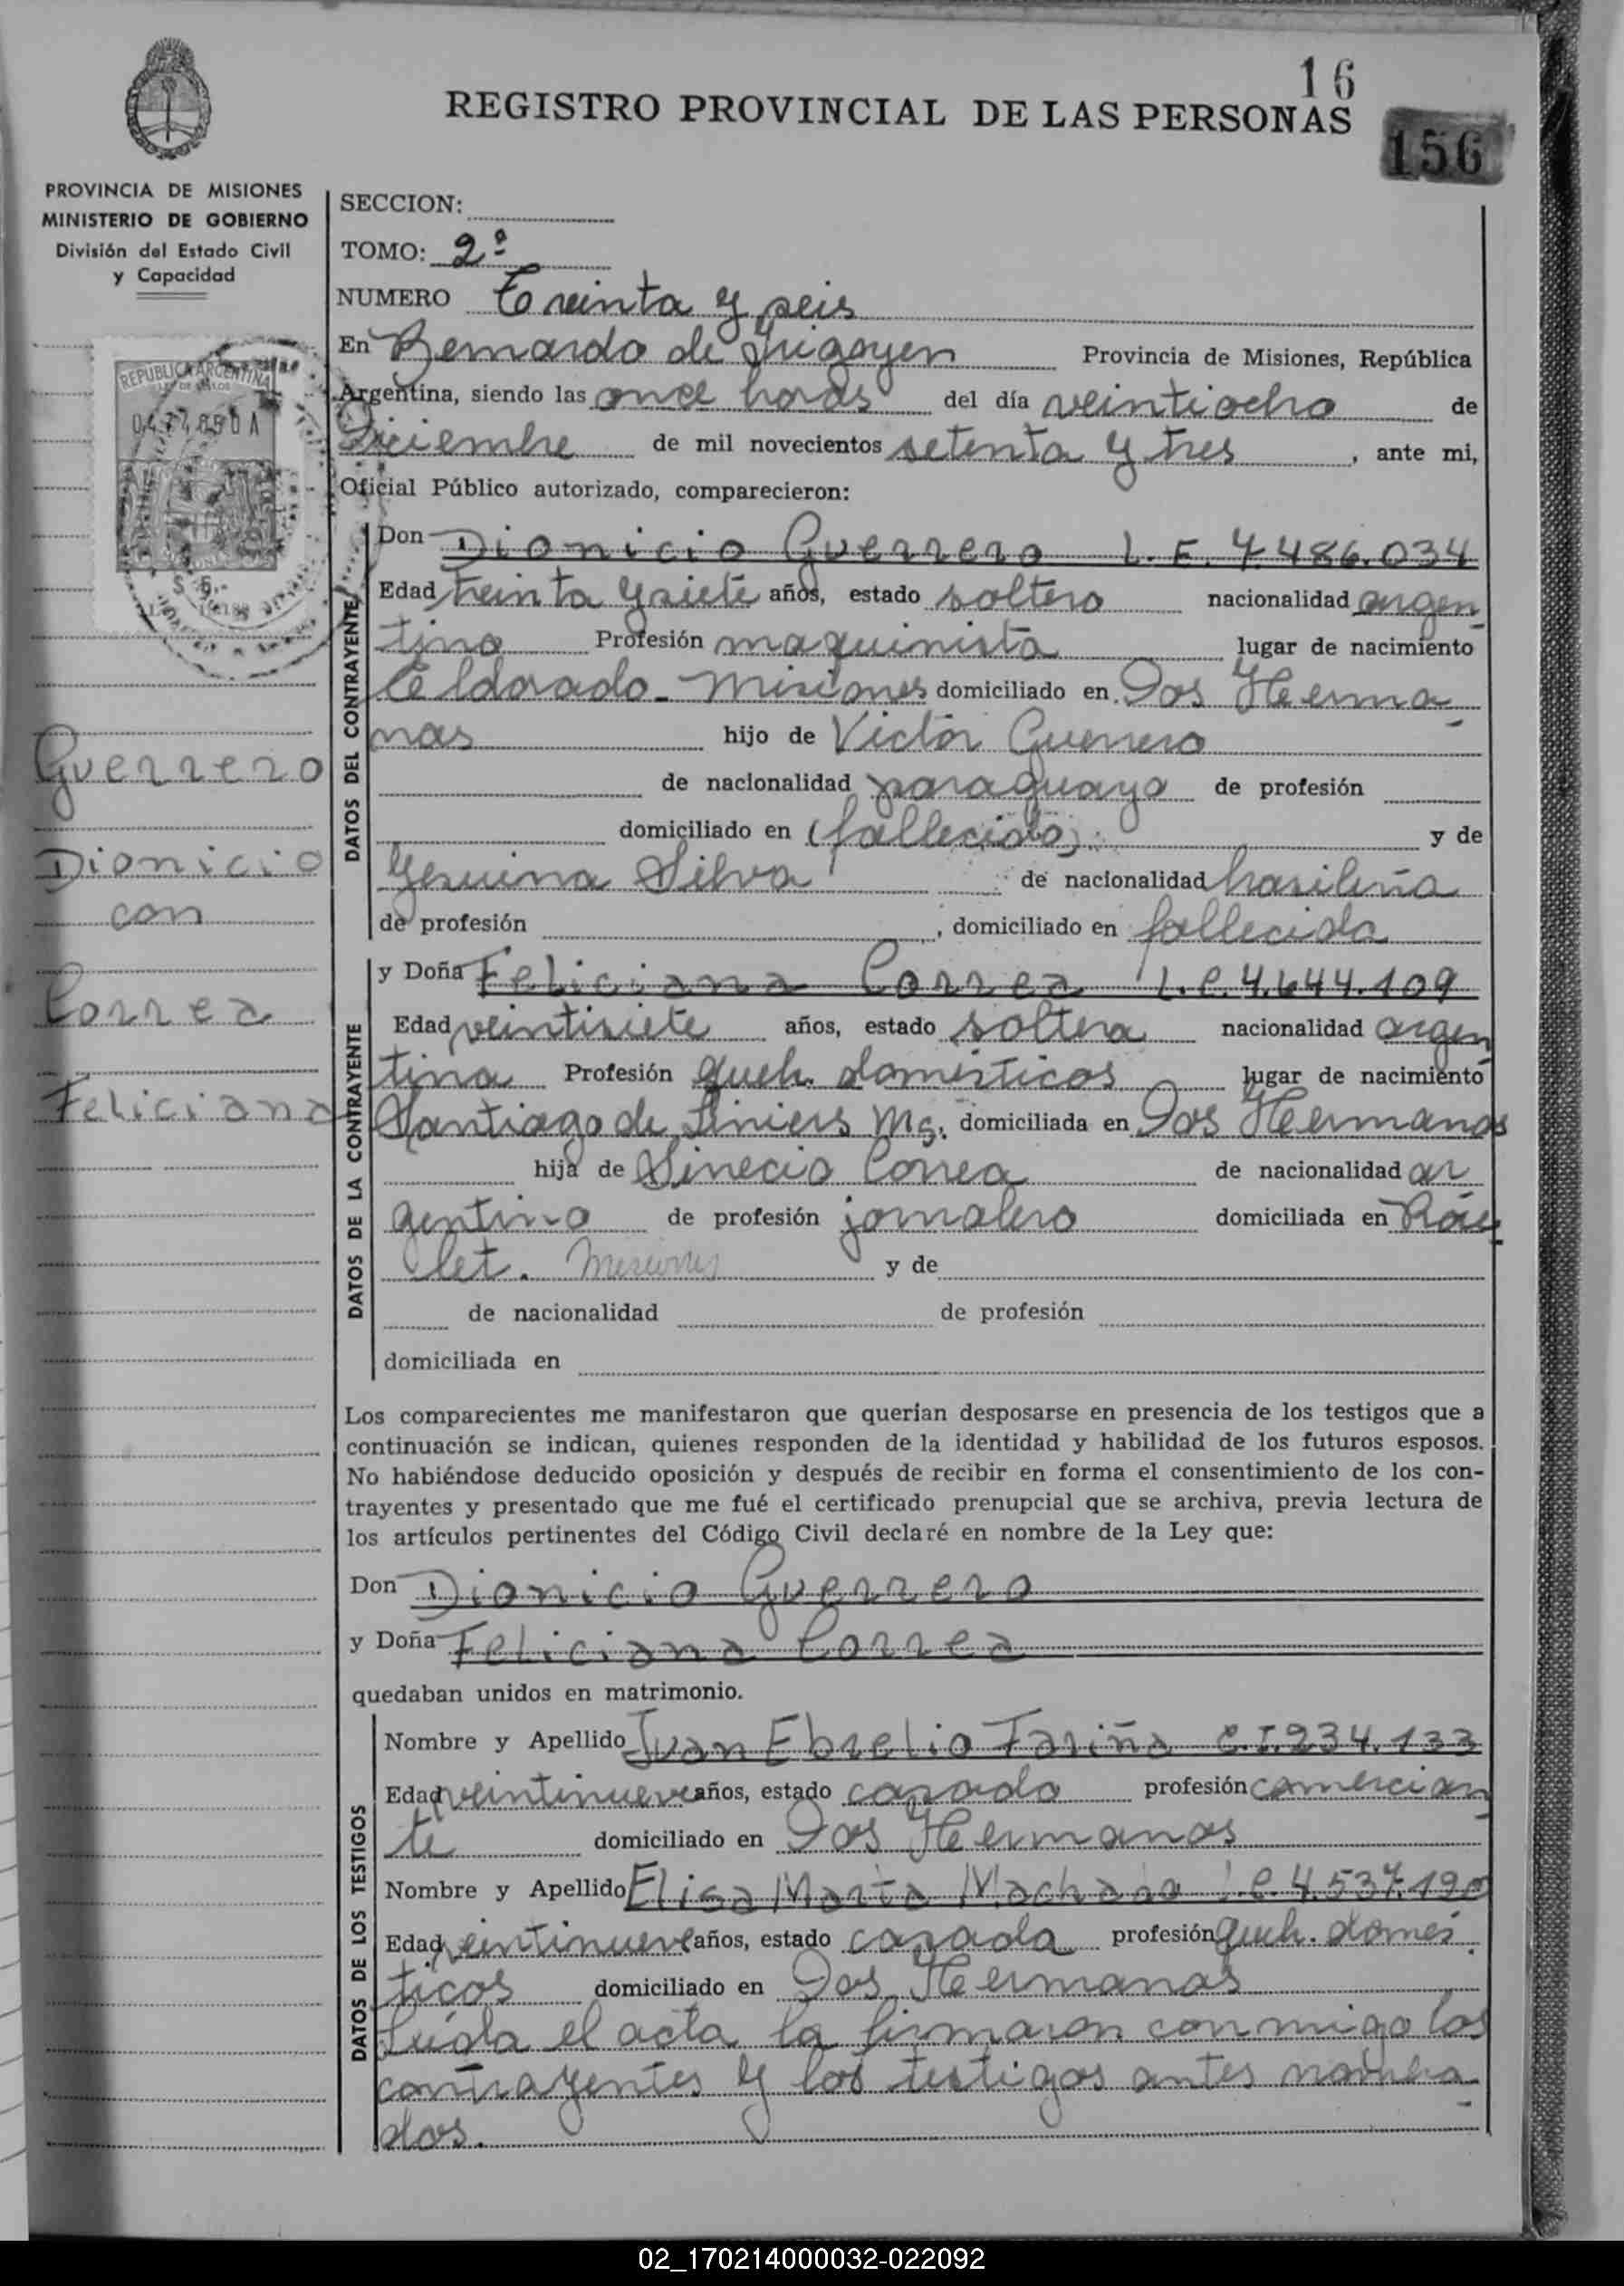 16
REGISTRO PROVINCIAL DE LAS PERSONAS
156
PROVINCIA DE MISIONES
MINISTERIO DE GOBIERNO
División del Estado Civil
y Capacidad
REPUBLICA ARGENTINA
$ 5.-
Guerrero
Dionicio
con
Correa
Feliciana
SECCION:
TOMO: 2ª
NUMERO Treinta y seis
En Bernardo de Irigoyen Provincia de Misiones, República
Argentina, siendo las once horas del día veintiocho de
Diciembre de mil novecientos setenta y tres, ante mi,
Oficial Público autorizado, comparecieron:
DATOS DEL CONTRAYENTE
Don Dionicio Guerrero L.E. 7.486.034
Edad treinta y siete años, estado soltero nacionalidad argen
tino Profesión maquinista lugar de nacimiento
Eldorado - Misiones domiciliado en Dos Herma
nas hijo de Victor Guerrero
de nacionalidad paraguaya de profesión
domiciliado en (fallecido) y de
Gesuina Silva de nacionalidad brasileña
de profesión , domiciliado en fallecida
DATOS DE LA CONTRAYENTE
y Doña Feliciana Correa L.C. 4.644.109
Edad veintisiete años, estado soltera nacionalidad argen
tina Profesión queh. domésticos lugar de nacimiento
Santiago de Liniers Ms. domiciliada en Dos Hermanas
hija de Sinecio Correa de nacionalidad ar
gentino de profesión jornalero domiciliada en
let. Misiones y de
de nacionalidad de profesión
domiciliada en
Los comparecientes me manifestaron que querían desposarse en presencia de los testigos que a
continuación se indican, quienes responden de la identidad y habilidad de los futuros esposos.
No habiéndose deducido oposición y después de recibir en forma el consentimiento de los con-
trayentes y presentado que me fué el certificado prenupcial que se archiva, previa lectura de
los artículos pertinentes del Código Civil declaré en nombre de la Ley que:
Don Dionicio Guerrero
y Doña Feliciana Correa
quedaban unidos en matrimonio.
DATOS DE LOS TESTIGOS
Nombre y Apellido Juan Ebrelio Fariña C.I. 234.133
Edad veintinueve años, estado casado profesión comercian
te domiciliado en Dos Hermanas
Nombre y Apellido Elisa Marta Machado L.C. 4.537.190
Edad veintinueve años, estado casada profesión queh. domés
ticos domiciliado en Dos Hermanas
Leída el acta la firmaron conmigo los
contrayentes y los testigos antes nombra
dos.
02_170214000032-022092